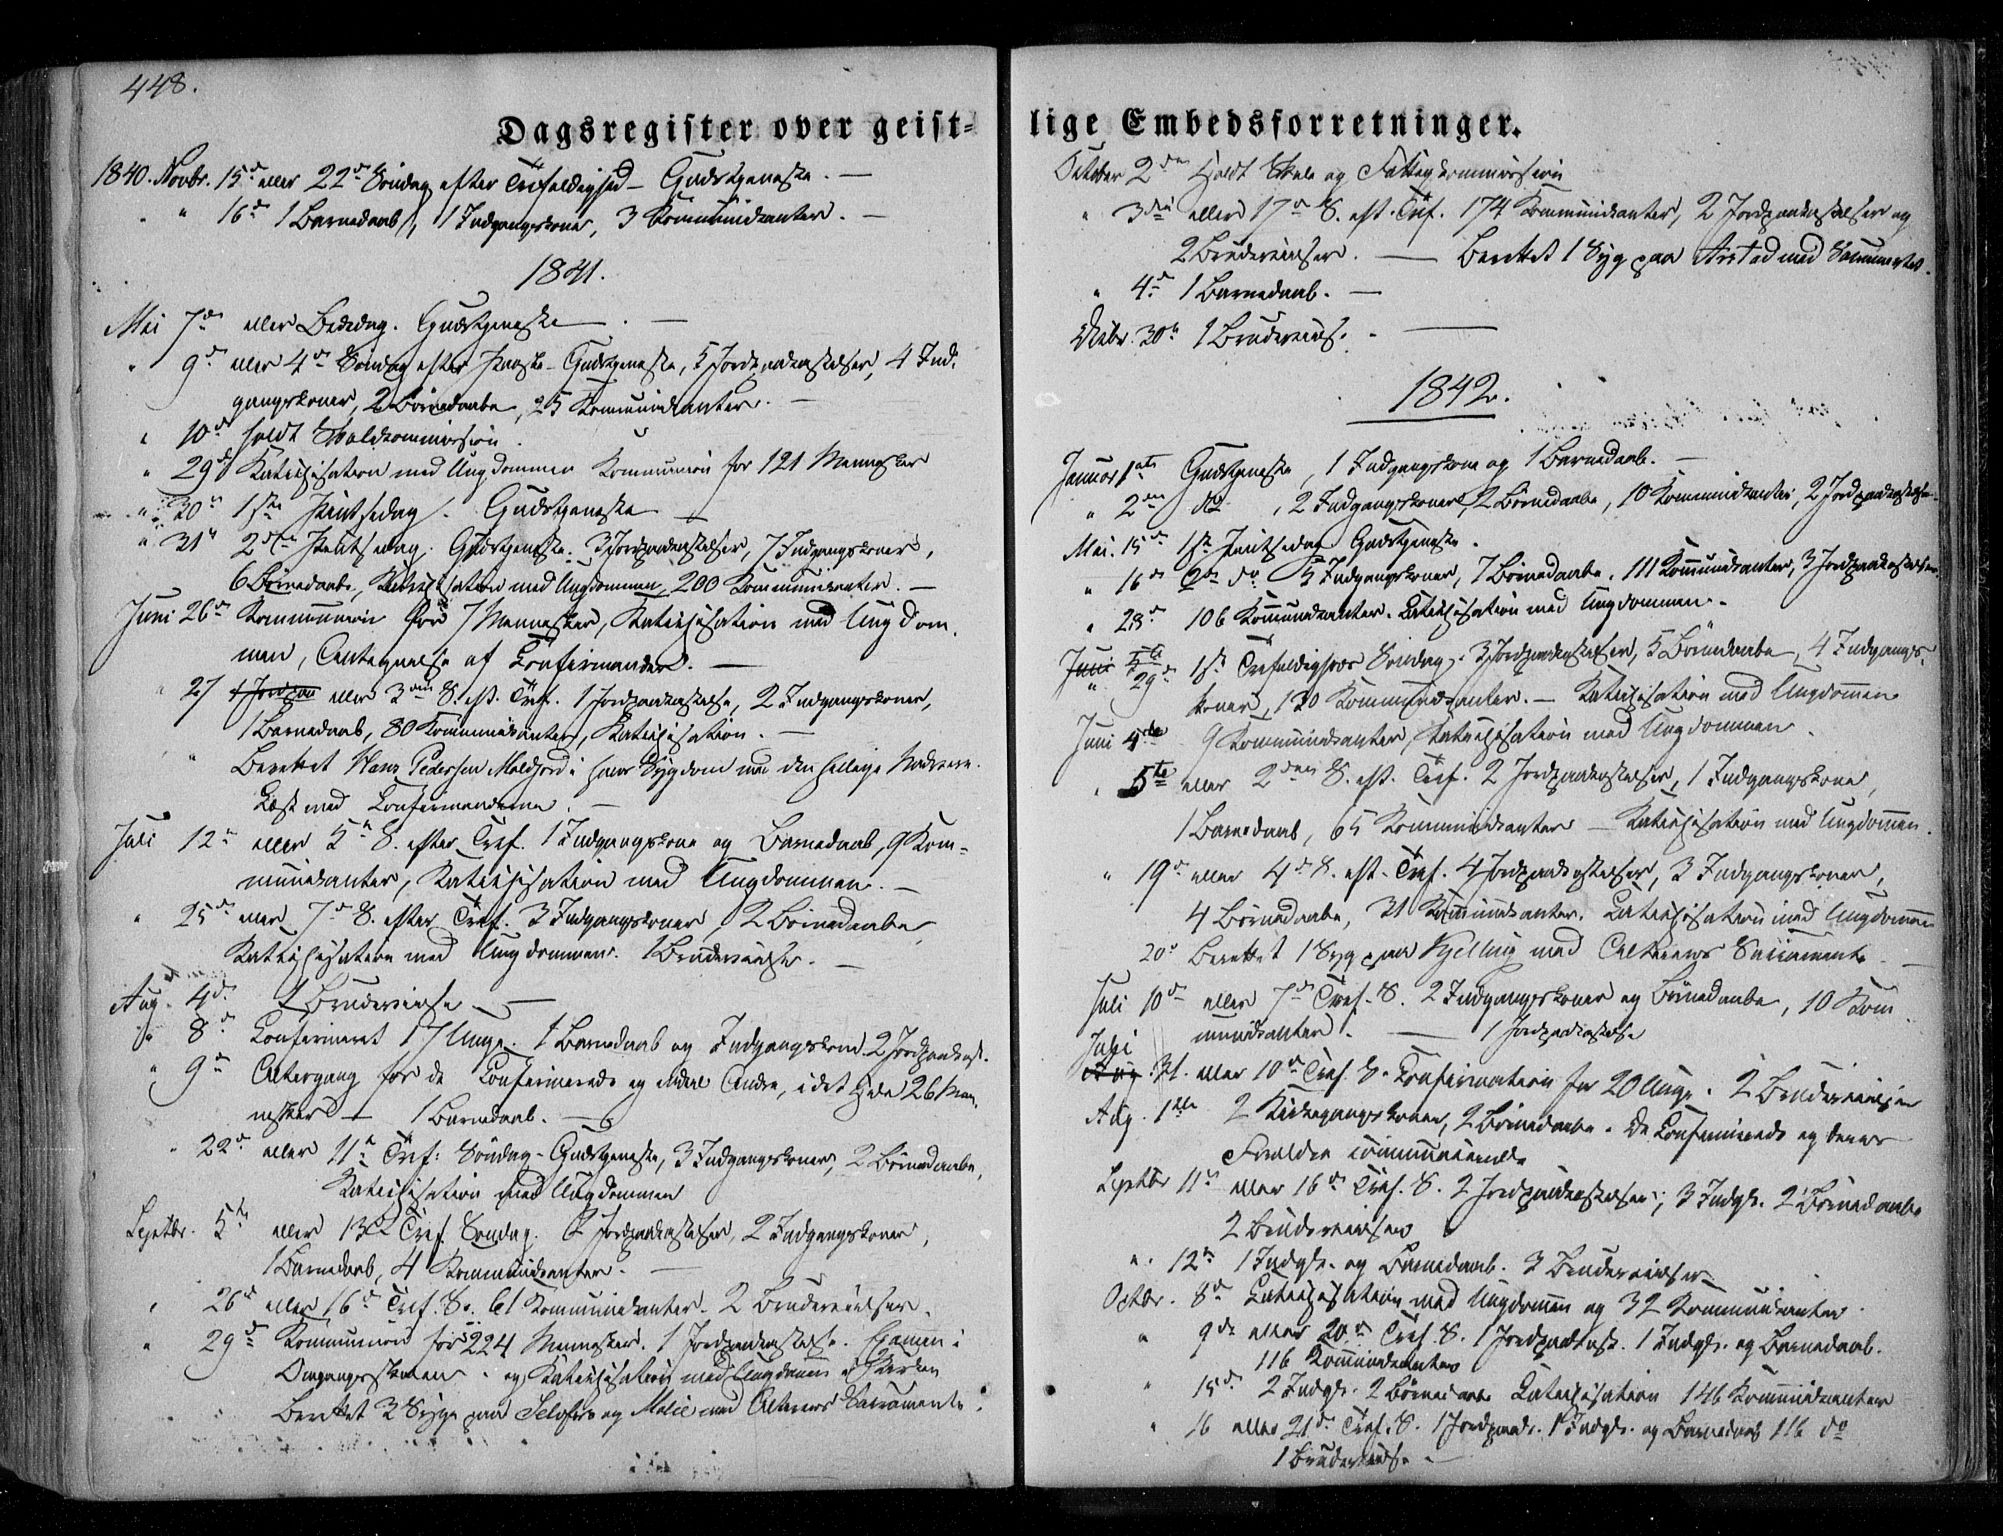 448.
Dagsregister over geist-
1840. Novbr. 15d eller 22d Söndag efter Trefoldighed - Gudstjeneste. —
" 16d 1 Barnedaab, 1 Indgangskone, 3 Kommunikanter. —
1841.
Mai 7de eller Bededag. Gudstjeneste. —
" 9d eller 4de Söndag efter Paaske - Gudstjeneste, 5 Jordpaakastelser, 4 Ind-
gangskoner, 2 Börnedaabe, 25 Kommunikanter. —
" 10d holdt Skolekommission.
" 29d Katechisation med Ungdommen Kommunion for 121 Mennesker
" 30te 1ste Pintsedag. Gudstjeneste —
" 31te 2den Pintsedag. Gudstjeneste. 3 Jordpaakastelser, 7 Indgangskoner,
6 Börnedaabe, Katechisation med Ungdommen, 200 Kommunikanter. —
Juni 26d Kommunion for 7 Mennesker, Katechisation med Ungdom-
men, Antagnelse af Confirmander. —
" 27 eller 3die S. eft. Tref. 1 Jordpaakastelse, 2 Indgangskoner,
1 Barnedaab, 80 Kommunikanter, Katechisation. —
" Berettet Hans Pedersen Moldjord i hans Sygdom med den hellige Nadvere.
Læst med Confirmanderne. —
Juli 12te eller 5te S. efter Tref. 1 Indgangskone og Barnedaab, 9 Kom-
munikanter, Katechisation med Ungdommen. —
" 25de eller 7de S. efter Tref. 3 Indgangskoner, 2 Börnedaabe,
Katechisation med Ungdommen. 1 Brudevielse. —
Aug. 4d. 1 Brudevielse —
" 8d Confirmeret 17 Unge. 1 Barnedaab og Indgangskone. 2 Jordpaakast.
" 9de Altergang for de Confirmerede og endeel Andre, i det Hele 26 Men-
nesker — 1 Barnedaab. —
" 22de eller 11te Tref: Söndag - Gudstjeneste, 3 Indgangskoner, 2 Börnedaabe,
Katechisation med Ungdommen
Septbr. 5te eller 13de Tref. Söndag. 2 Jordpaakastelser, 2 Indgangskoner,
1 Barnedaab, 4 Kommunikanter. —
" 26d eller 16d Tref. S. 61 Kommunikanter. 2 Brudevielser.
" 29d Kommunion for 224 Mennesker. 1 Jordpaakastelse. Examen i
Omgangsskolen og Katechisation med Ungdommen i Kirken
Berettet 2 Syge paa og med Alterens Sacramente.
lige Embedsforretninger.
October 2den Holdt Skole og Fattigkommission
" 3die eller 17de S. eft. Tref. 174 Kommunikanter, 2 Jordpaakastelser og
2 Brudevielser. — Berettet 1 Syg paa Arstad med Sacramentet.
" 4d 1 Barnedaab. —
Octbr. 30te 1 Brudevielse. —
1842.
Januar 1ste Gudstjeneste, 1 Indgangskone og 1 Barnedaab. —
" 2den do , 2 Indgangskoner, 2 Börnedaabe, 10 Kommunikanter, 2 Jordpaakastelser.
Mai. 15de 1ste Pintsedag Gudstjeneste.
" 16de 2den do 5 Indgangskoner, 7 Börnedaabe. 111 Kommunikanter, 3 Jordpaakastelser.
" 28de 106 Kommunikanter. Catechisation med Ungdommen.
Juni 5te
" 29de 1ste Trefoldigheds Söndag. 3 Jordpaakastelser, 5 Börnedaabe, 4 Indgangs-
koner, 130 Kommunikanter. — Katechisation med Ungdommen
Juni 4de 9 Kommunikanter, Katechisation med Ungdommen.
" 5te eller 2den S. eft. Tref. 2 Jordpaakastelser, 1 Indgangskone,
1 Barnedaab, 65 Kommunikanter — Katechisation med Ungdommen.
" 19de eller 4de S. eft. Tref. 4 Jordpaakastelser, 3 Indgangskoner,
4 Börnedaabe, 31 Kommunikanter. Catechisation med Ungdommen
20de Berettet 1 Syg paa Kjelling med Alterens Sacramente. —
Juli 10de eller 7de Tref. S. 2 Indgangskoner og Börnedaabe, 10 Kom-
munikanter. — 1 Jordpaakastelse
Juli
Aug. 31. eller 10de Tref. S. Confirmation for 20 Unge. 2 Brudevielser
Aug. 1ste 2 Kirkegangskoner, 2 Börnedaabe. De Confirmerede og deres
Forældre communicerede
Septbr 11te eller 16de Tref. S. 2 Jordpaakastelser, 3 Indgk. 2 Börnedaabe
2 Brudevielser
" 12te 1 Indgk. og Barnedaab. 3 Brudevielser
Octbr. 8de Catechisation med Ungdommen og 32 Kommunikanter.
" 9de eller 20de Tref. S. 1 Jordpaakast. 1 Indgk. og Barnedaab.
116 Kommunikanter
" 15de 2 Indgk. 2 Börnedaabe Catechisation 146 Kommunikanter
" 16 eller 21de Tref. S. 1 Jordpaak. 1 Indgk. og Barnedaab 116 do
1 Brudevielse —